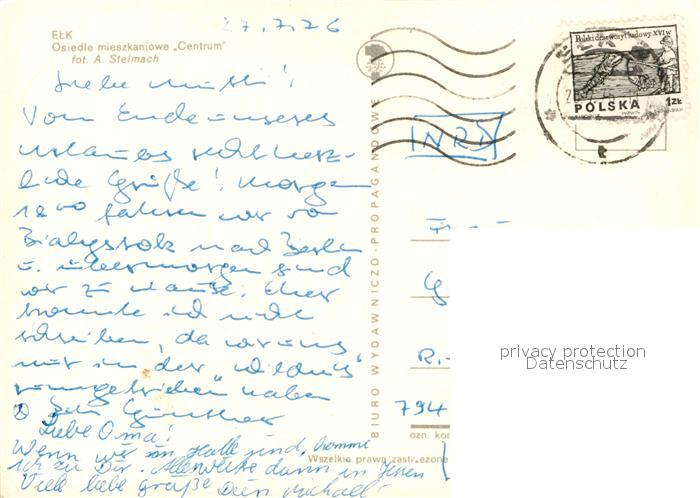 27.7.76
EŁK
Osiedle mieszkaniowe „Centrum"
fot. A. Stelmach
Polski drzeworyt ludowy XVI w
POLSKA 1ZŁ
NRD
Liebe Mutti!
Vom Ende unseres
Urlaubs recht herz-
liche Grüße! Morgen
18⁰⁰ fahren wir von
Bialystok nach Berlin
u. übermorgen sind
wir zu Hause. Eher
konnte ich nicht
schreiben, da wir uns
nur in der „Wildnis"
rumgetrieben haben
Dein Günther
Liebe Oma!
Wenn wir in Halle sind, komme
ich zu Dir. Alles weitere dann in Jessen
Viele liebe Grüße Dein Michael!
BIURO WYDAWNICZO-PROPAGANDOWE
R.-
794
ozn. kod
Wszelkie prawa zastrzeżone
privacy protection
Datenschutz